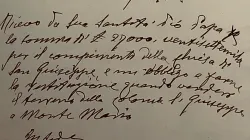 Ricevo da Sua Santità Pio Papa X
la somma di £ 27000. ventisettemila
per il compimento della chiesa di
San Giuseppe, e mi obbligo a farne
la restituzione quando venderò
il terreno della colonia S. Giuseppe
a Monte Mario